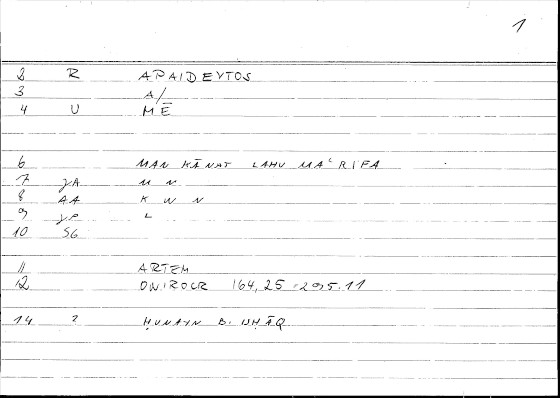 1
2 R APAIDEYTOS
3 A/
4 U MĒ
6 MAN KĀNAT LAHU MAʿRIFA
7 JA M N
8 AA K W N
9 JP L
10 SG
11 ARTEM
12 ONIROCR 164,25 = 295.11
14 ? ḤUNAYN B. ISḤĀQ